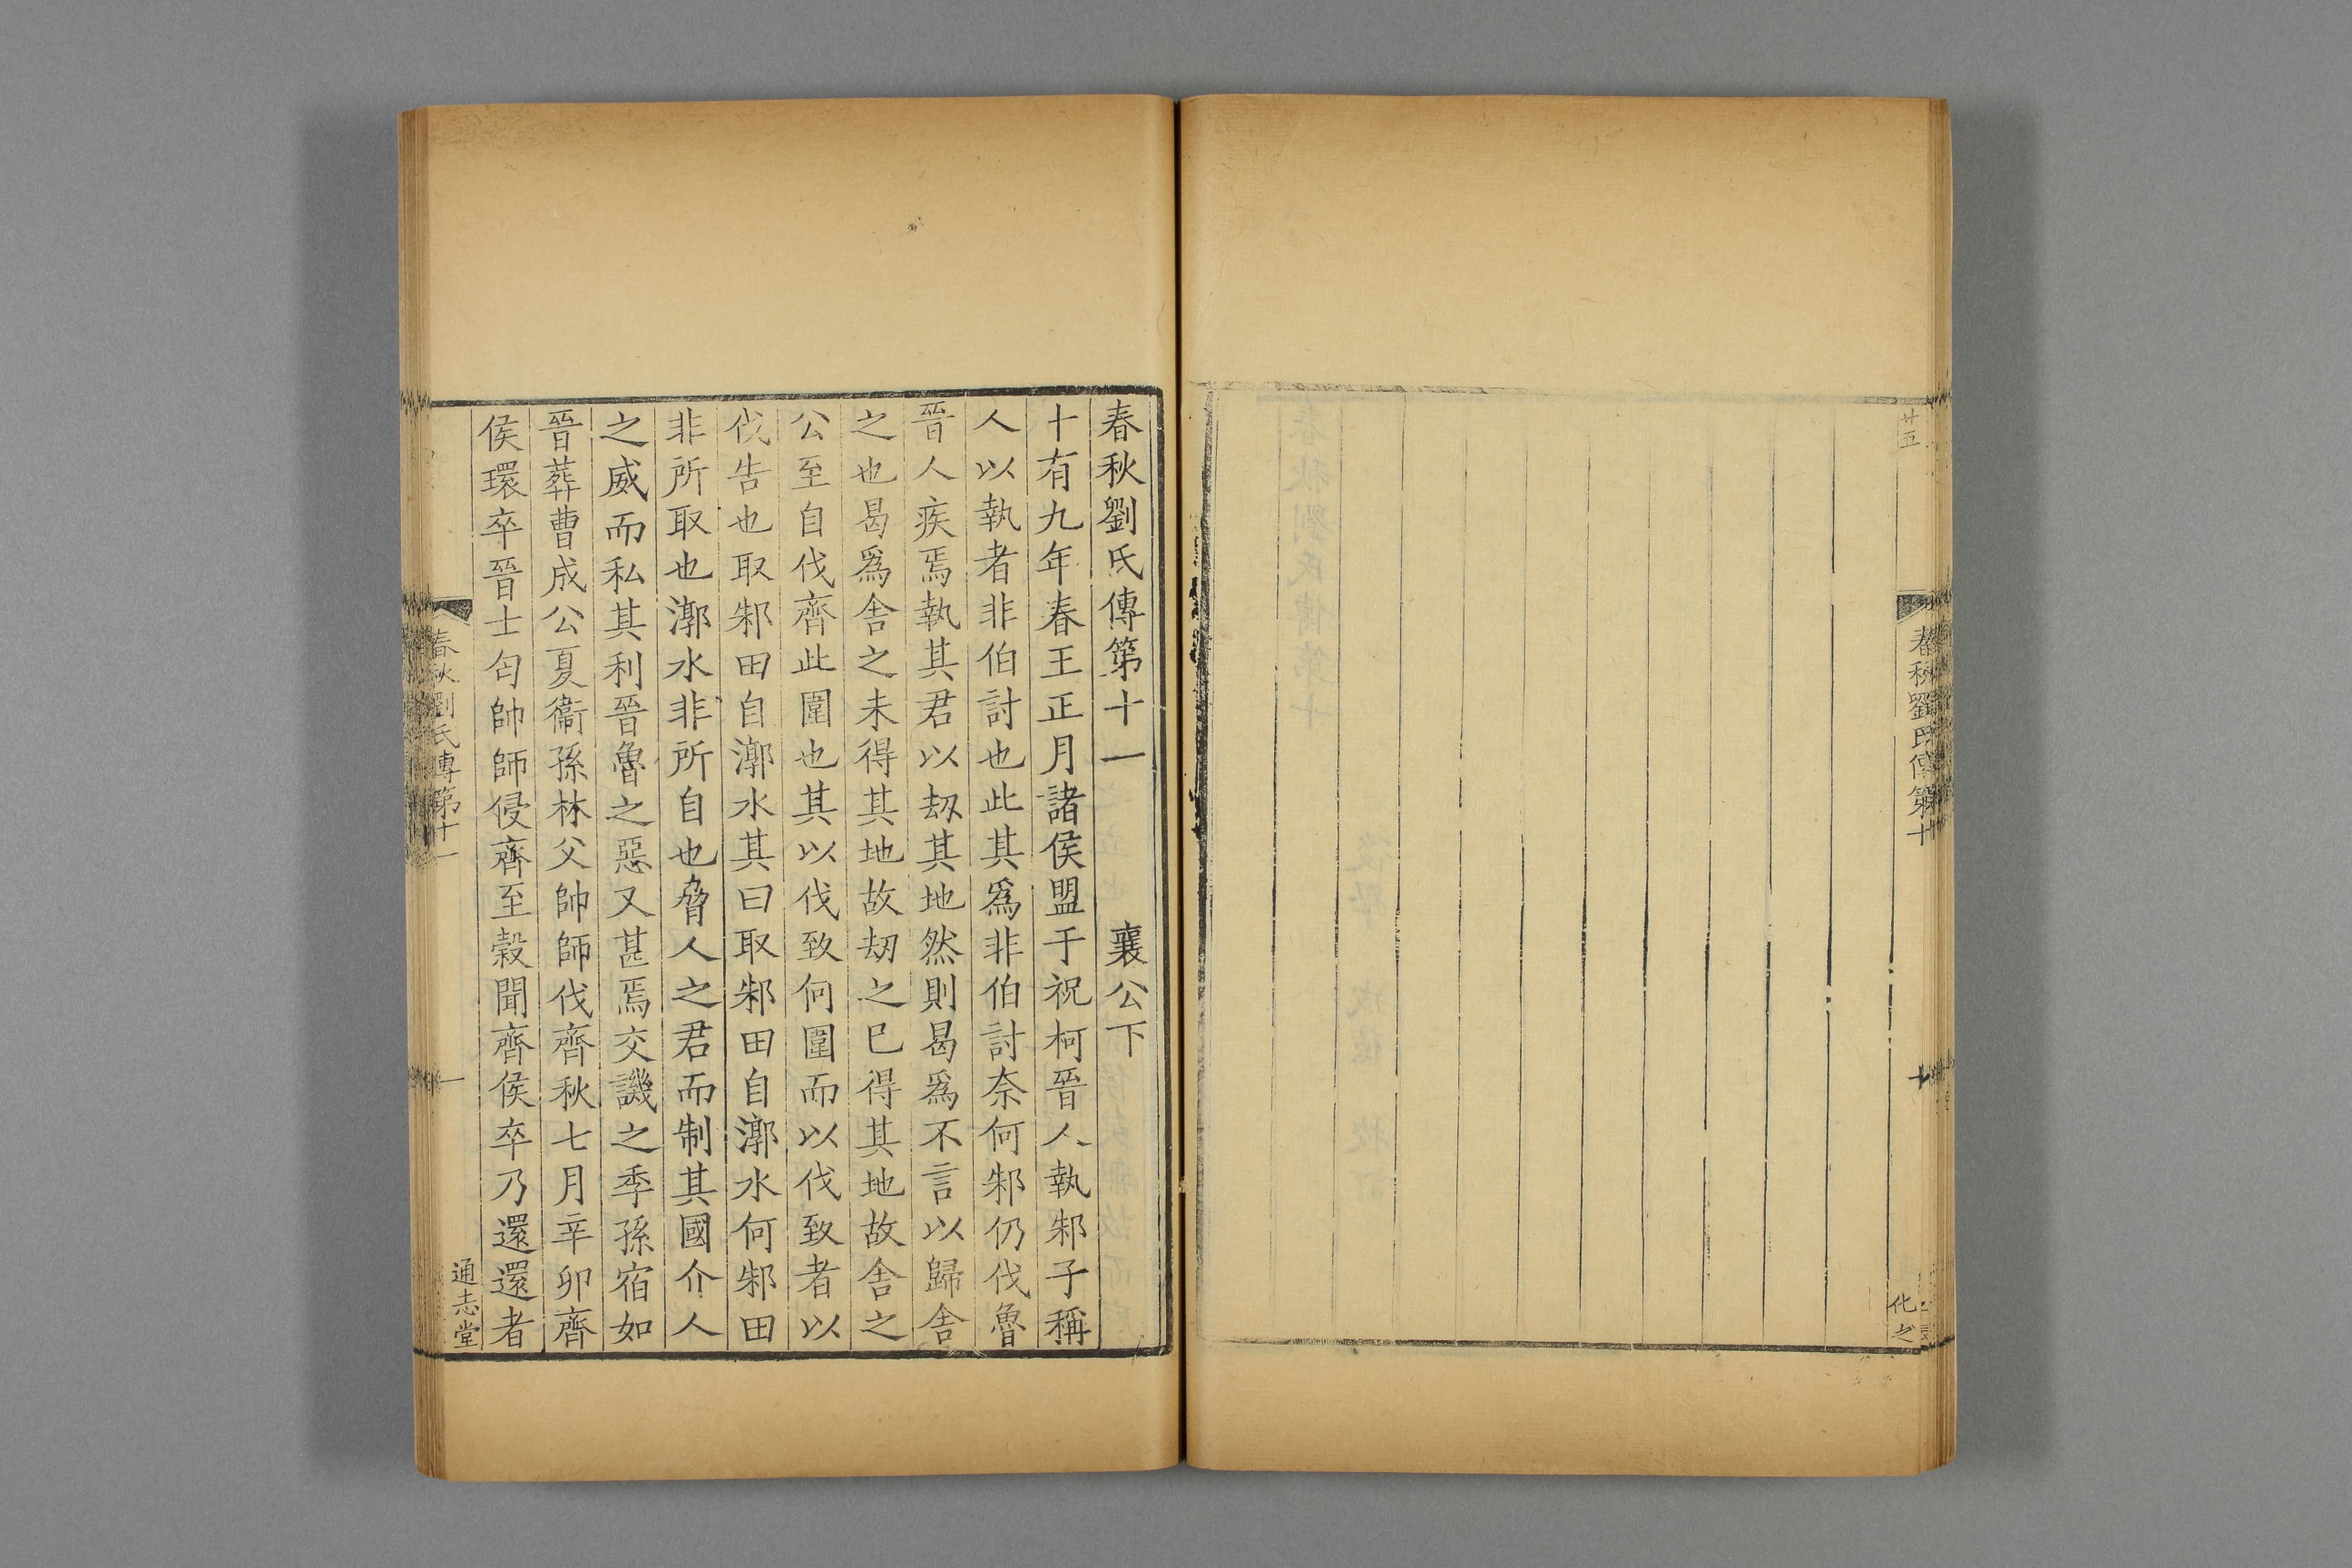 廿五
春秋劉氏傳第十
十
化之
春秋劉氏傳第十一　襄公下
十有九年春王正月諸侯盟于祝柯晉人執邾子稱
人以執者非伯討也此其爲非伯討奈何邾仍伐魯
晉人疾焉執其君以刼其地然則曷爲不言以歸舍
之也曷爲舍之未得其地故刼之巳得其地故舍之
公至自伐齊此圍也其以伐致何圍而以伐致者以
伐告也取邾田自漷水其曰取邾田自漷水何邾田
非所取也漷水非所自也脅人之君而制其國介人
之威而私其利晉魯之惡又甚焉交譏之季孫宿如
晉葬曹成公夏衞孫林父帥師伐齊秋七月辛卯齊
侯環卒晉士匄帥師侵齊至榖聞齊侯卒乃還還者
春秋劉氏傳第十一
一
通志堂